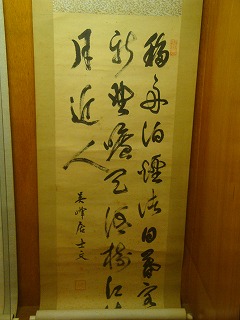 移舟泊煙渚日暮客愁
新野曠天低樹江清
月近人
峰居士